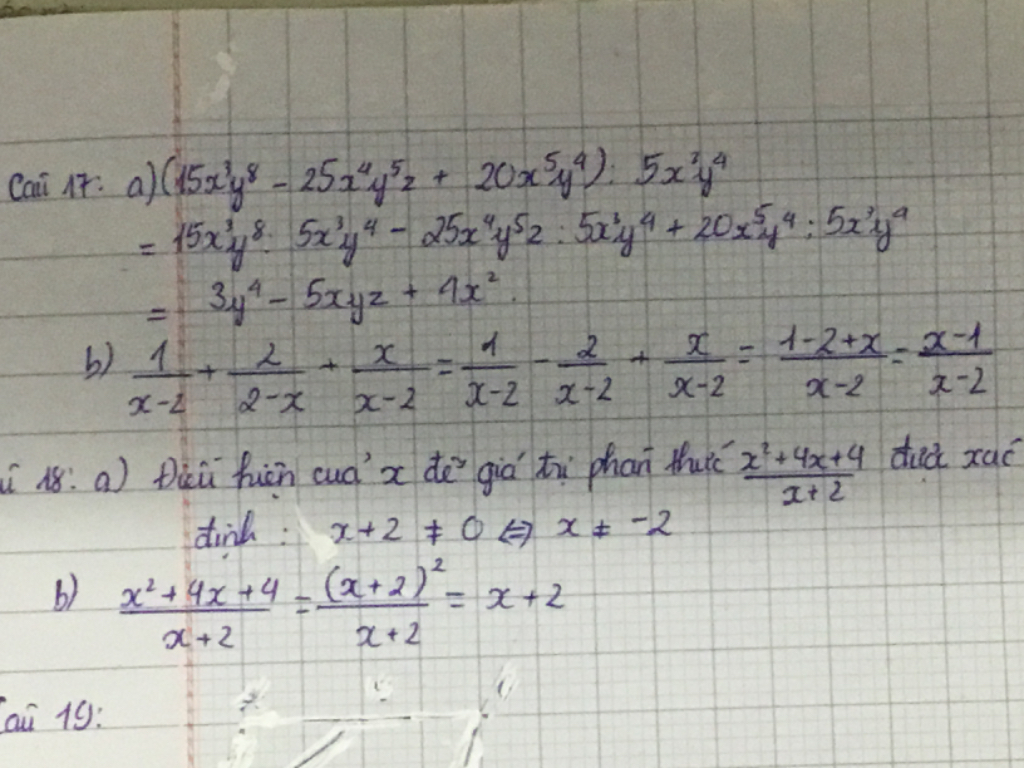 Câu 17: a) (15x³y⁸ - 25x⁴y⁵z + 20x⁵y⁴) : 5x³y⁴
= 15x³y⁸ : 5x³y⁴ - 25x⁴y⁵z : 5x³y⁴ + 20x⁵y⁴ : 5x³y⁴
= 3y⁴ - 5xyz + 4x².
b) 1/(x-2) + 2/(2-x) + x/(x-2) = 1/(x-2) - 2/(x-2) + x/(x-2) = (1-2+x)/(x-2) = (x-1)/(x-2)
u 18: a) Điều kiện của x để giá trị phân thức (x²+4x+4)/(x+2) được xác
định : x+2 ≠ 0 ⇔ x ≠ -2
b) (x²+4x+4)/(x+2) = (x+2)²/(x+2) = x+2
Câu 19: